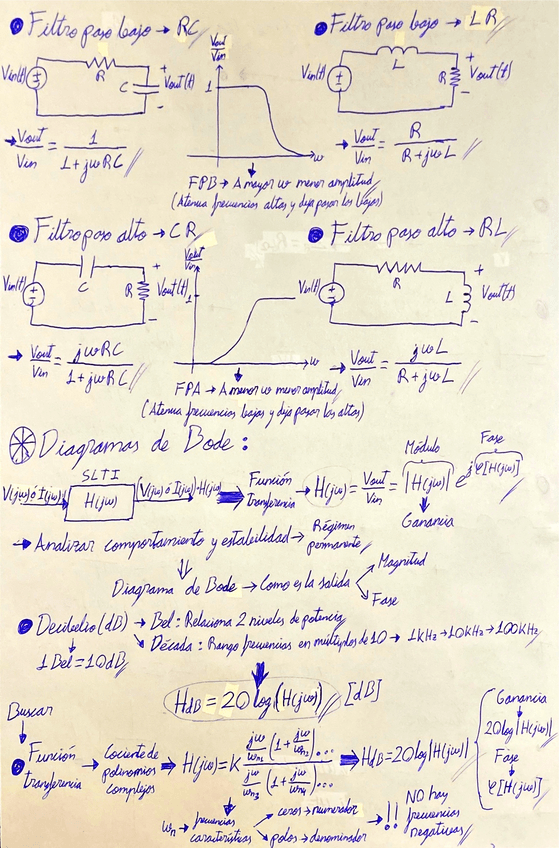 Filtro paso bajo → RC
Vin(t) R C Vout(t)
Vout/Vin
1
w
→ Vout/Vin = 1/(1+jwRC)
Filtro paso bajo → LR
Vin(t) L R Vout(t)
→ Vout/Vin = R/(R+jwL)
FPB → A mayor w menor amplitud
(Atenua frecuencias altas y deja pasar las bajas)
Filtro paso alto → CR
Vin(t) C R Vout(t)
Vout/Vin
1
w
→ Vout/Vin = jwRC/(1+jwRC)
Filtro paso alto → RL
Vin(t) R L Vout(t)
→ Vout/Vin = jwL/(R+jwL)
FPA → A menor w menor amplitud
(Atenua frecuencias bajas y deja pasar las altas)
Diagramas de Bode:
SLTI
V(jw) ó I(jw) H(jw) (V(jw) ó I(jw))·H(jw)
Función transferencia → H(jw) = Vout/Vin = |H(jw)| e^jφ[H(jw)]
Módulo
Fase
Ganancia
→ Analizar comportamiento y estabilidad → Régimen permanente
Diagrama de Bode → Como es la salida
Magnitud
Fase
Decibelio (dB) → Bel: Relaciona 2 niveles de potencia
Década: Rango frecuencias en multiplos de 10 → 1KHz → 10KHz → 100KHz
1 Bel = 10dB
HdB = 20 log|H(jw)| [dB]
Buscar
Función transferencia → Cociente de polinomios complejos ⇒ H(jw) = K (jw/wn1 (1+jw/wn2)...)/(jw/wn3 (1+jw/wn4)...) ⇒ HdB = 20 log|H(jw)|
Ganancia
20 log|H(jw)|
Fase
φ[H(jw)]
wn → frecuencias características
ceros → numerador
polos → denominador
→ !! NO hay frecuencias negativas